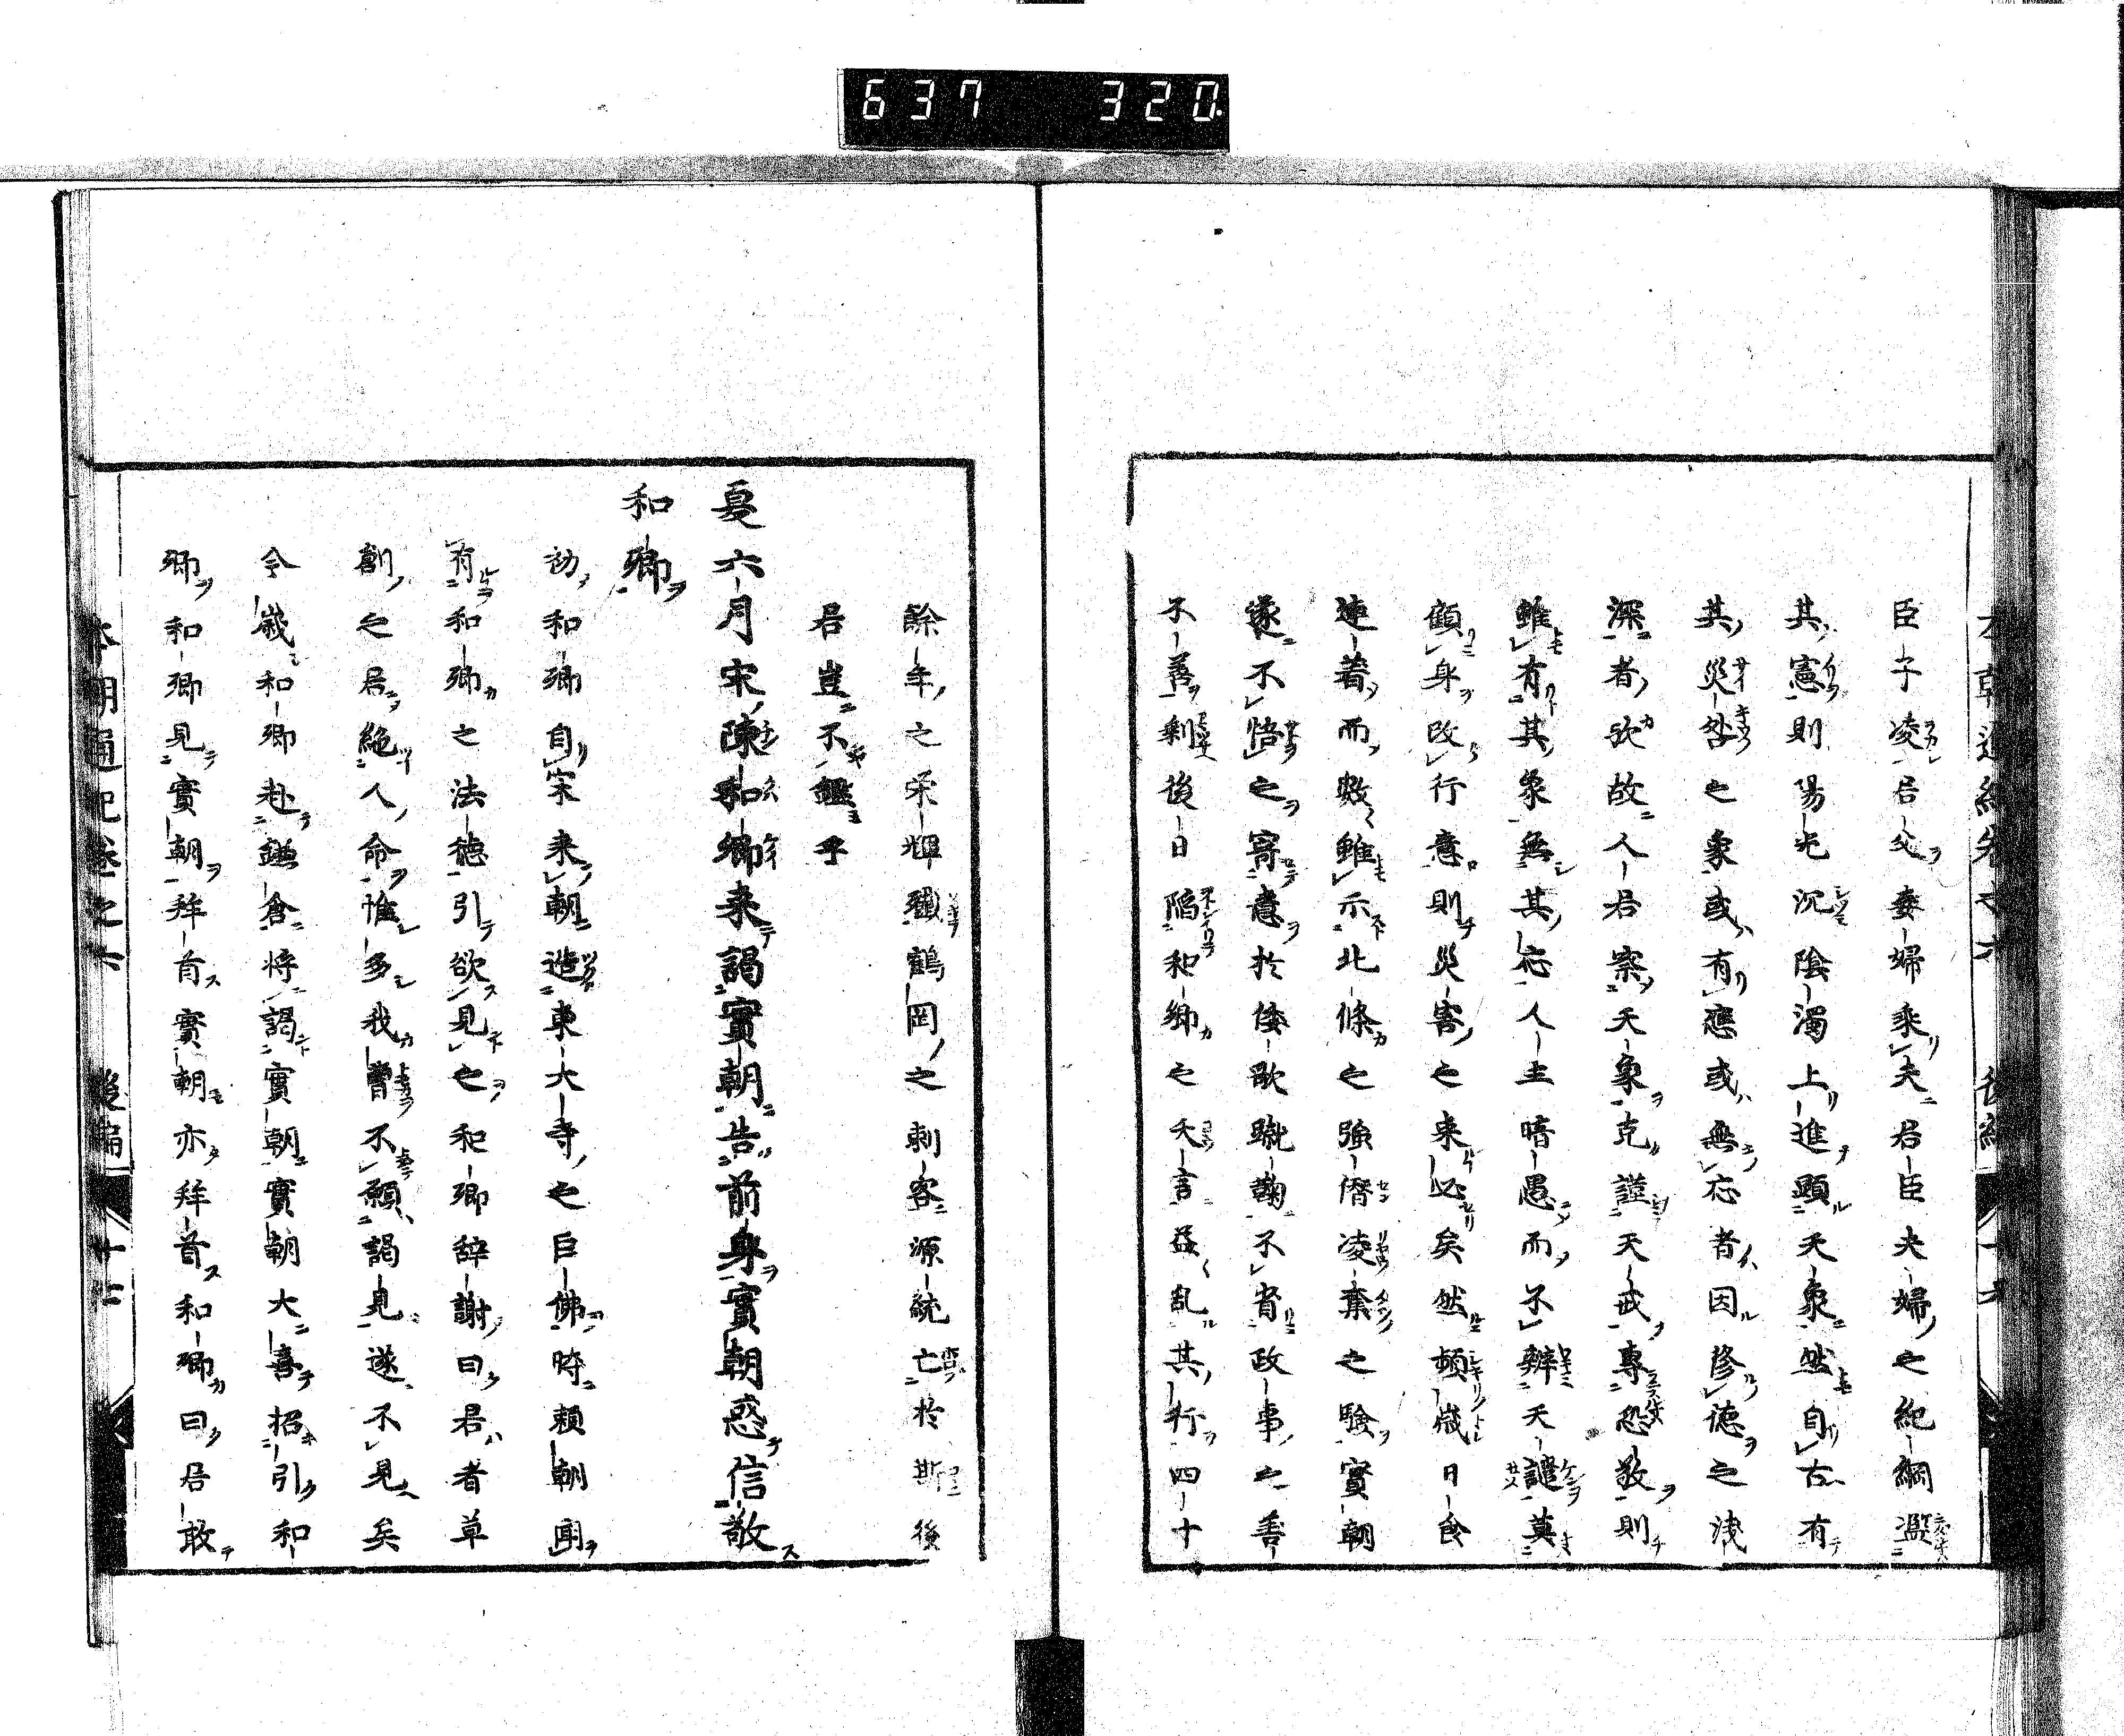 637 320
臣子凌君父妻婦乘夫君臣夫婦之紀綱濫
其憲則陽光沉陰濁上進顕天象然自古有
其災咎之象或有應或無応者因修德之浅
深者歟故人君察天象克謹天戒專恐敬則
雖有其象無其応人主暗愚而不辨天譴莫
顧身改行意則災害之来必矣然頻歳日食
連着而數雖示北條之強僭凌棄之驗實朝
遂不悟之寄意於倭歌蹴鞠不省政事之善
不善剰後日陥和卿之夭言益乱其行四十
餘年之栄輝殲鶴岡之刺客源統亡於斯後
君豈不鑑乎
夏六月宋陳和卿来謁實朝告前身實朝惑信敬
和卿
初和卿自宋来朝造東大寺之巨佛時頼朝聞
有和卿之法徳引欲見之和卿辞謝曰君者草
創之君絶人命惟多我曽不願謁見遂不見矣
今歳和卿赴鎌倉将謁實朝實朝大喜招引和
卿和卿見實朝拜首實朝亦拜首和卿曰君敢
本朝通紀巻之六 後編 廿二